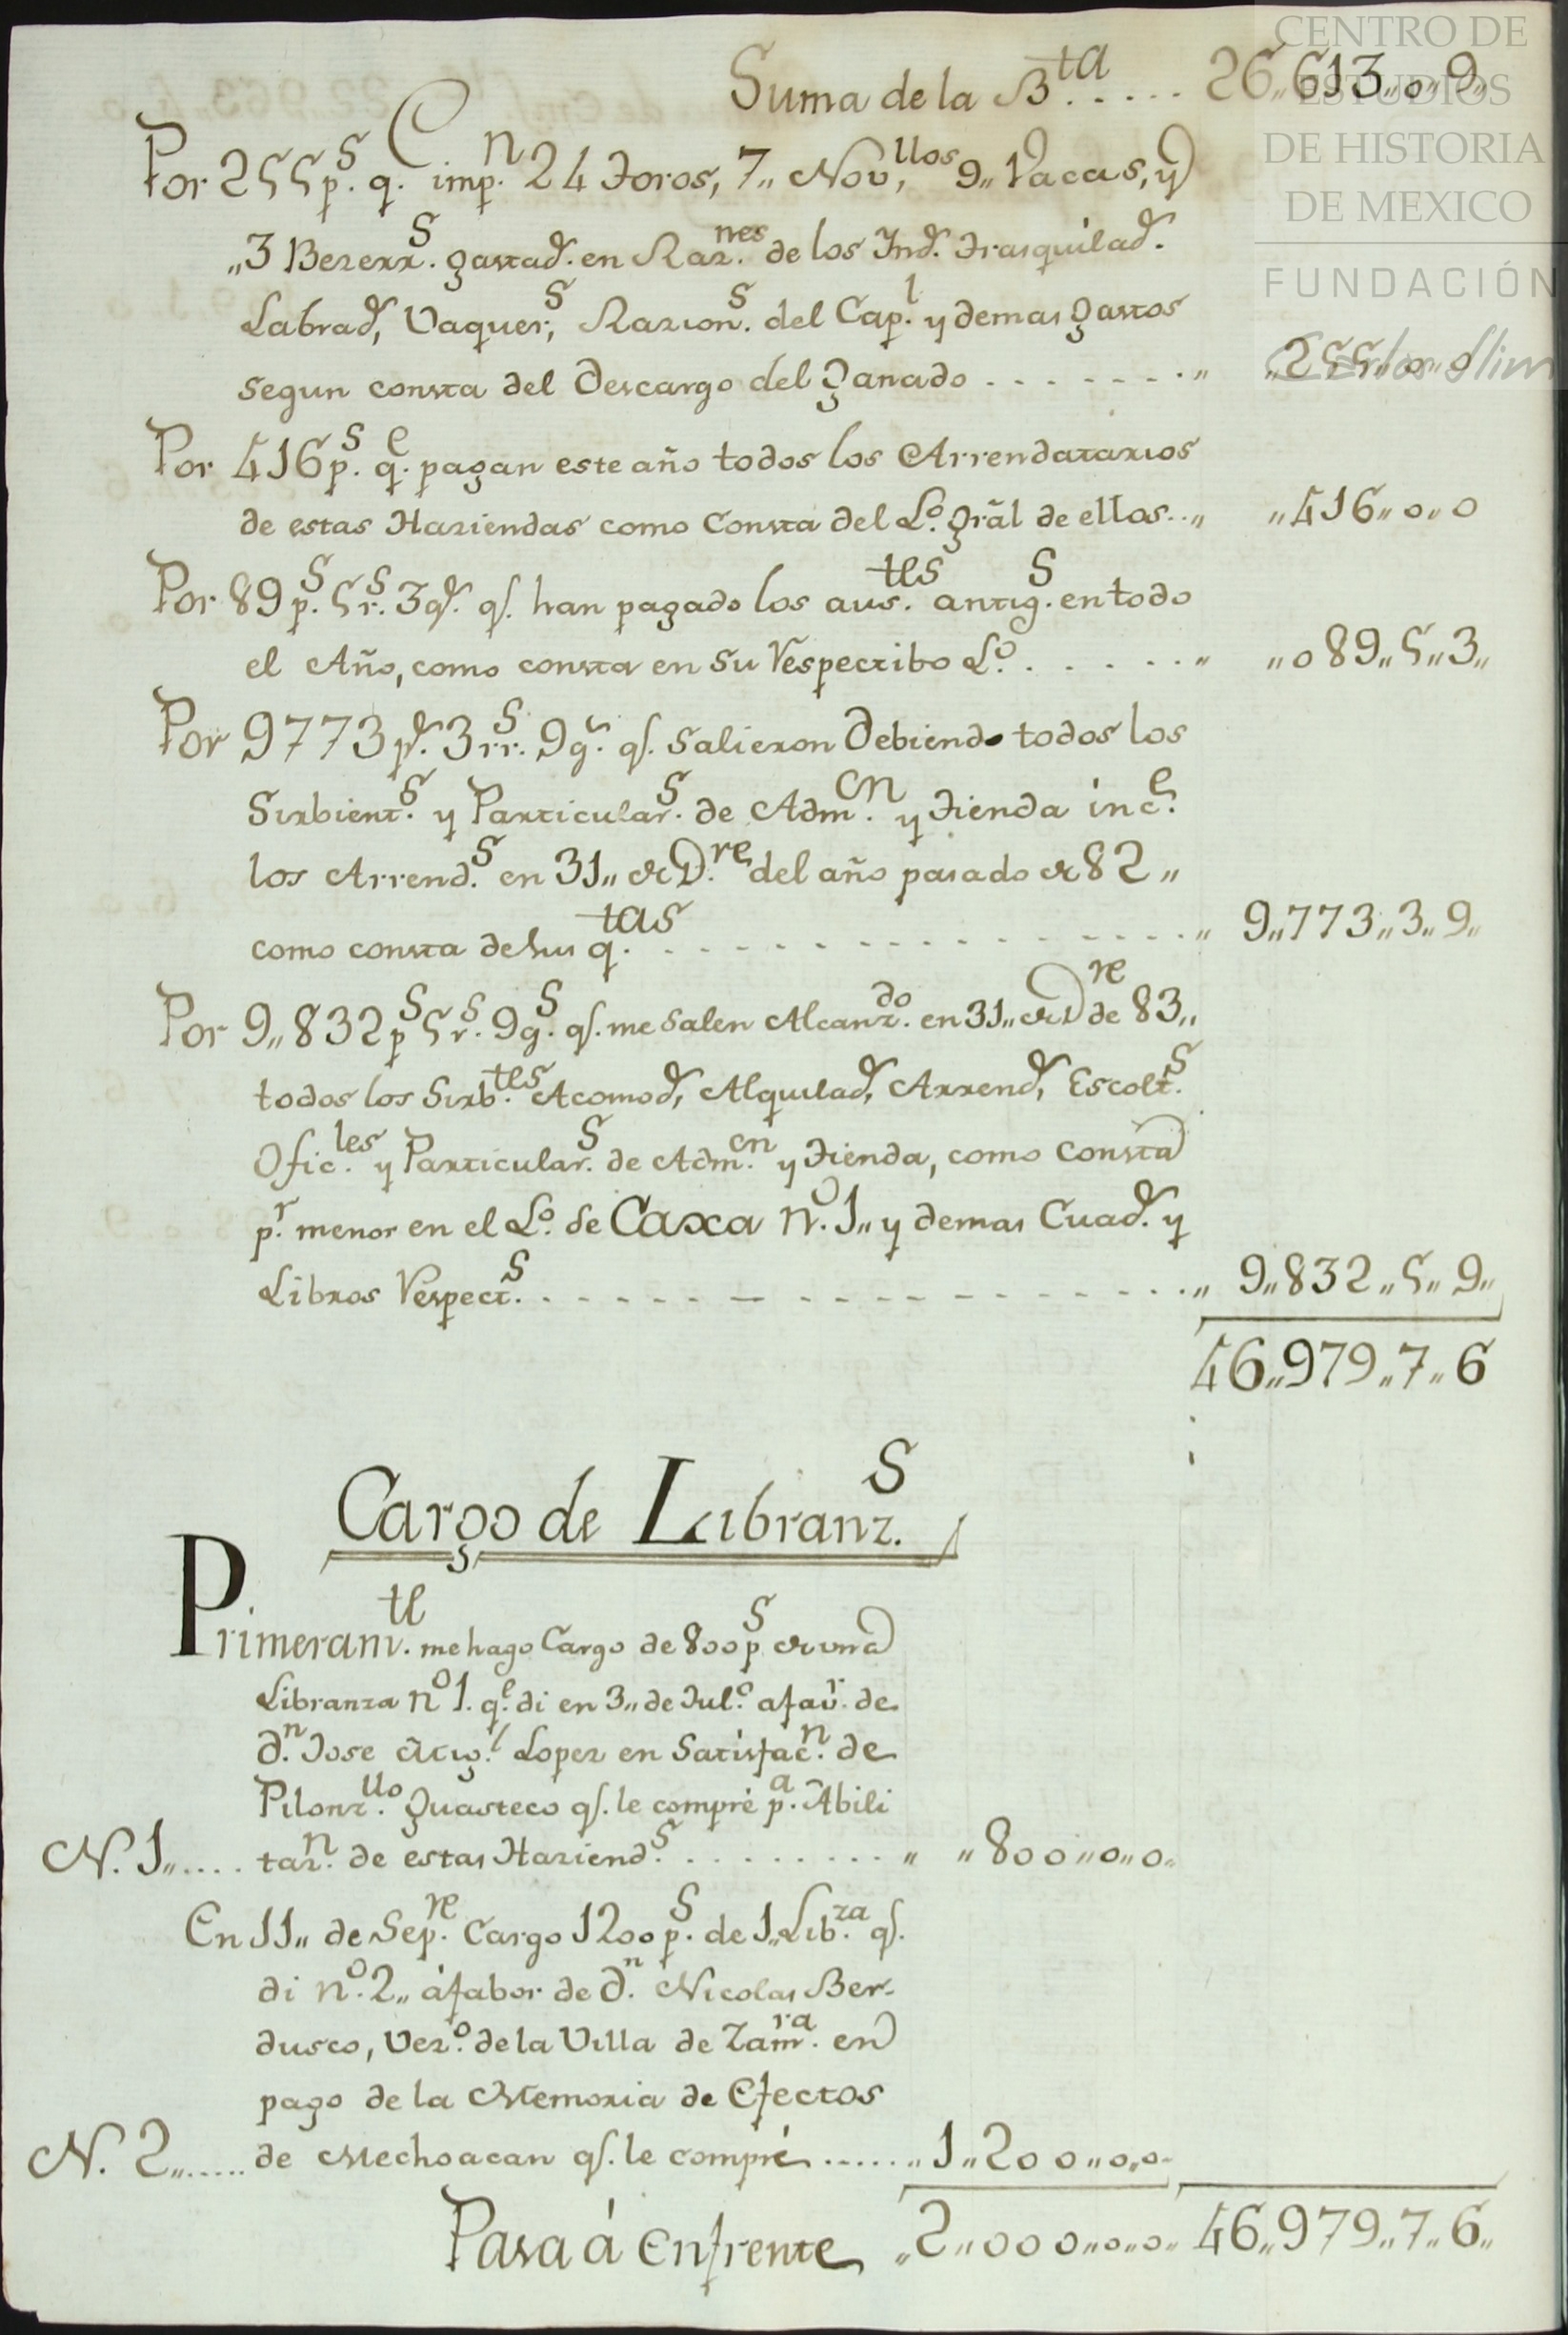 CENTRO DE
ESTUDIOS
DE HISTORIA
DE MEXICO
FUNDACIÓN
Carlos Slim
Suma de la B.ta ..... 26,,613,,0,,9,,
Por 255 p.s q.e imp.n 24 Toros, 7,, Nov,llos 9,, Vacas, y
,,3 Bezerr.s gastad.s en Raz.nes de los Ind.s Trasquilad.s
Labrad.s, Vaquer.s, Razion.s del Cap.l y demas gastos
segun consta del Descargo del ganado . . . . . . . ,, ,,255,,0,,0
Por 416 p.s q.e pagan este año todos los Arrendatarios
de estas Haziendas como Consta del L.o Grãl de ellos..,, ,,416,,0,,0
Por 89 p.s 5 r.s 3 g.s q.e han pagado los aus.tes antig.s en todo
el Año, como consta en su Respectibo L.o . . . . . ,, ,,089,,5,,3,,
Por 9773 p.s 3 rr.s 9 g.s q.e salieron Debiendo todos los
Sirbient.s y Particular.s de Adm.on y Tienda inc.e
los Arrend.s en 31,, de D.re del año pasado de 82,,
como consta de sus q.tas . . . . . . . . . . . . ,, 9,,773,,3,,9,,
Por 9,,832 p.s 5 r.s 9 g.s q.e me salen Alcanz.do en 31,, de D.re de 83,,
todos los Sirb.tes Acomod.s, Alquilad.s, Arrend.s, Escolt.s
Ofic.les y Particular.s de Adm.on y Tienda, como Consta
p.r menor en el L.o de Caxa N.o 1,, y demas Cuad.s y
Libros Respect.s . . . . . . . . . . . . . . . ,, 9,,832,,5,,9,,
46,,979,,7,,6
Cargo de Libranz.s
Primeram.te me hago Cargo de 800 p.s de una
Libranza n.o 1. q.e di en 3,, de Jul.o a fav.r de
d.n Jose Mig.l Lopez en Satisfac.n de
Pilonz.llo Guasteco q.e le compré p.a Abili
N. 1,,.... taz.n de estas Haziend.s . . . . . . . . ,, ,,800,,0,,0,,
En 11,, de Sep.re Cargo 1200 p.s de 1,, Lib.za q.e
di n.o 2,, á fabor de d.n Nicolas Ber-
dusco, Vez.o de la Villa de Zam.ra en
pago de la Memoria de Efectos
N. 2,,..... de Mechoacan q.e le compré ...... ,, 1,,200,,0,,0,,
Pasa á Enfrente ,,2,,000,,0,,0,, 46,,979,,7,,6,,